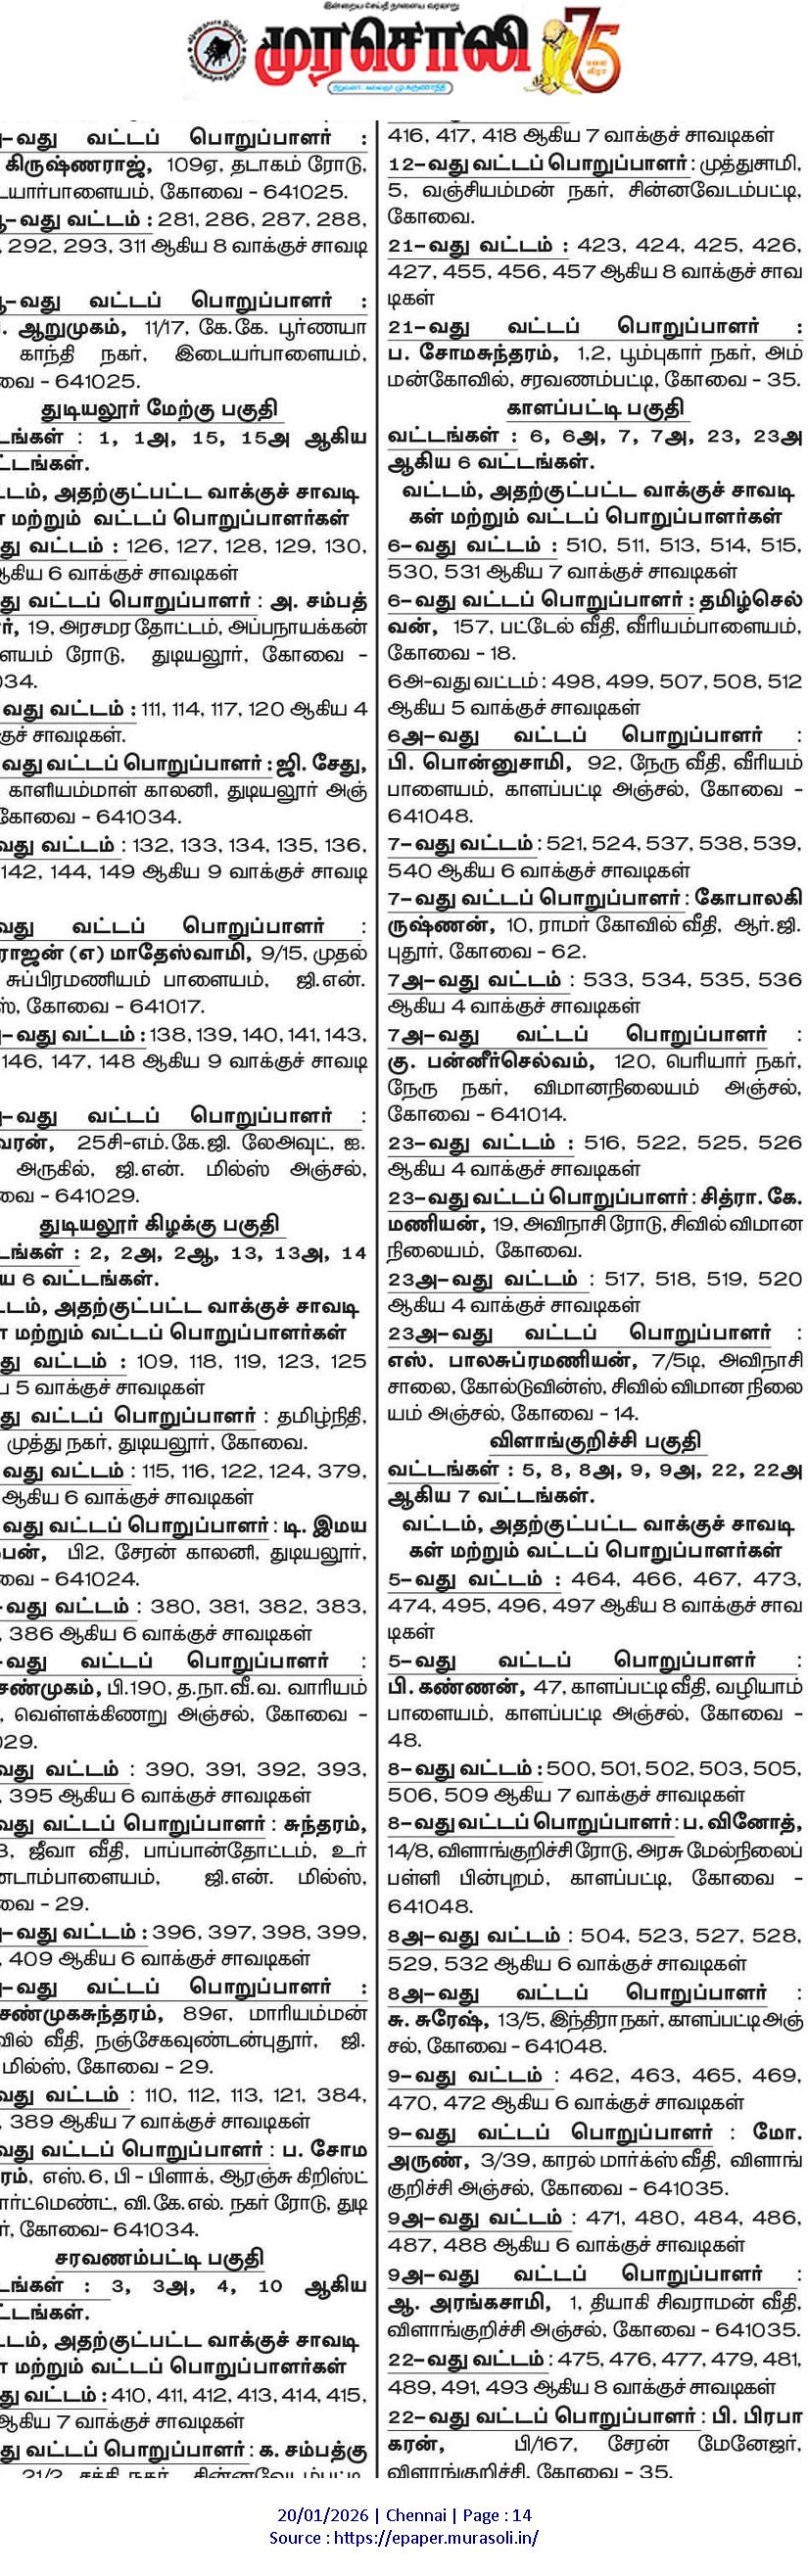 இன்றைய செய்தி நாளைய வரலாறு
முரசொலி 75
-வது வட்டப் பொறுப்பாளர் :
கிருஷ்ணராஜ், 109ஏ, தடாகம் ரோடு,
டயார்பாளையம், கோவை - 641025.
-வது வட்டம் : 281, 286, 287, 288,
, 292, 293, 311 ஆகிய 8 வாக்குச் சாவடி
-வது வட்டப் பொறுப்பாளர் :
. ஆறுமுகம், 11/17, கே.கே. பூர்ணயா
காந்தி நகர், இடையர்பாளையம்,
வை - 641025.
துடியலூர் மேற்கு பகுதி
டங்கள் : 1, 1அ, 15, 15அ ஆகிய
ட்டங்கள்.
டம், அதற்குட்பட்ட வாக்குச் சாவடி
மற்றும் வட்டப் பொறுப்பாளர்கள்
து வட்டம் : 126, 127, 128, 129, 130,
ஆகிய 6 வாக்குச் சாவடிகள்
து வட்டப் பொறுப்பாளர் : அ. சம்பத்
ர், 19, அரசமர தோட்டம், அப்பநாயக்கன்
ளையம் ரோடு, துடியலூர், கோவை -
034.
வது வட்டம் : 111, 114, 117, 120 ஆகிய 4
குச் சாவடிகள்.
வது வட்டப் பொறுப்பாளர் : ஜி. சேது,
காளியம்மாள் காலனி, துடியலூர் அஞ்
கோவை - 641034.
வது வட்டம் : 132, 133, 134, 135, 136,
142, 144, 149 ஆகிய 9 வாக்குச் சாவடி
வது வட்டப் பொறுப்பாளர் :
ராஜன் (எ) மாதேஸ்வாமி, 9/15, முதல்
சுப்பிரமணியம் பாளையம், ஜி.என்.
ஸ், கோவை - 641017.
-வது வட்டம் : 138, 139, 140, 141, 143,
146, 147, 148 ஆகிய 9 வாக்குச் சாவடி
-வது வட்டப் பொறுப்பாளர் :
வரன், 25சி-எம்.கே.ஜி. லேஅவுட், ஐ.
அருகில், ஜி.என். மில்ஸ் அஞ்சல்,
வை - 641029.
துடியலூர் கிழக்கு பகுதி
டங்கள் : 2, 2அ, 2ஆ, 13, 13அ, 14
ய 6 வட்டங்கள்.
டம், அதற்குட்பட்ட வாக்குச் சாவடி
மற்றும் வட்டப் பொறுப்பாளர்கள்
து வட்டம் : 109, 118, 119, 123, 125
ய 5 வாக்குச் சாவடிகள்
து வட்டப் பொறுப்பாளர் : தமிழ்நிதி,
முத்து நகர், துடியலூர், கோவை.
வது வட்டம் : 115, 116, 122, 124, 379,
ஆகிய 6 வாக்குச் சாவடிகள்
வது வட்டப் பொறுப்பாளர் : டி. இமய
பன், பி2, சேரன் காலனி, துடியலூர்,
வை - 641024.
-வது வட்டம் : 380, 381, 382, 383,
, 386 ஆகிய 6 வாக்குச் சாவடிகள்
-வது வட்டப் பொறுப்பாளர் :
சண்முகம், பி.190, த.நா.வீ.வ. வாரியம்
, வெள்ளக்கிணறு அஞ்சல், கோவை -
029.
வது வட்டம் : 390, 391, 392, 393,
, 395 ஆகிய 6 வாக்குச் சாவடிகள்
வது வட்டப் பொறுப்பாளர் : சுந்தரம்,
3, ஜீவா வீதி, பாப்பான்தோட்டம், உர்
டாம்பாளையம், ஜி.என். மில்ஸ்,
வை - 29.
-வது வட்டம் : 396, 397, 398, 399,
, 409 ஆகிய 6 வாக்குச் சாவடிகள்
-வது வட்டப் பொறுப்பாளர் :
சண்முகசுந்தரம், 89எ, மாரியம்மன்
வில் வீதி, நஞ்சேகவுண்டன்புதூர், ஜி.
மில்ஸ், கோவை - 29.
வது வட்டம் : 110, 112, 113, 121, 384,
, 389 ஆகிய 7 வாக்குச் சாவடிகள்
வது வட்டப் பொறுப்பாளர் : ப. சோம
ரம், எஸ்.6, பி - பிளாக், ஆரஞ்சு கிறிஸ்ட்
ார்ட்மெண்ட், வி.கே.எல். நகர் ரோடு, துடி
ர், கோவை- 641034.
சரவணம்பட்டி பகுதி
டங்கள் : 3, 3அ, 4, 10 ஆகிய
ட்டங்கள்.
டம், அதற்குட்பட்ட வாக்குச் சாவடி
மற்றும் வட்டப் பொறுப்பாளர்கள்
து வட்டம் : 410, 411, 412, 413, 414, 415,
ஆகிய 7 வாக்குச் சாவடிகள்
து வட்டப் பொறுப்பாளர் : க. சம்பத்கு
21/2, சக்தி நகர், சின்னவேடம்பட்டி,
416, 417, 418 ஆகிய 7 வாக்குச் சாவடிகள்
12-வது வட்டப் பொறுப்பாளர் : முத்துசாமி,
5, வஞ்சியம்மன் நகர், சின்னவேடம்பட்டி,
கோவை.
21-வது வட்டம் : 423, 424, 425, 426,
427, 455, 456, 457 ஆகிய 8 வாக்குச் சாவ
டிகள்
21-வது வட்டப் பொறுப்பாளர் :
ப. சோமசுந்தரம், 1,2, பூம்புகார் நகர், அம்
மன்கோவில், சரவணம்பட்டி, கோவை - 35.
காளப்பட்டி பகுதி
வட்டங்கள் : 6, 6அ, 7, 7அ, 23, 23அ
ஆகிய 6 வட்டங்கள்.
வட்டம், அதற்குட்பட்ட வாக்குச் சாவடி
கள் மற்றும் வட்டப் பொறுப்பாளர்கள்
6-வது வட்டம் : 510, 511, 513, 514, 515,
530, 531 ஆகிய 7 வாக்குச் சாவடிகள்
6-வது வட்டப் பொறுப்பாளர் : தமிழ்செல்
வன், 157, பட்டேல் வீதி, வீரியம்பாளையம்,
கோவை - 18.
6அ-வது வட்டம் : 498, 499, 507, 508, 512
ஆகிய 5 வாக்குச் சாவடிகள்
6அ-வது வட்டப் பொறுப்பாளர் :
பி. பொன்னுசாமி, 92, நேரு வீதி, வீரியம்
பாளையம், காளப்பட்டி அஞ்சல், கோவை -
641048.
7-வது வட்டம் : 521, 524, 537, 538, 539,
540 ஆகிய 6 வாக்குச் சாவடிகள்
7-வது வட்டப் பொறுப்பாளர் : கோபாலகி
ருஷ்ணன், 10, ராமர் கோவில் வீதி, ஆர்.ஜி.
புதூர், கோவை - 62.
7அ-வது வட்டம் : 533, 534, 535, 536
ஆகிய 4 வாக்குச் சாவடிகள்
7அ-வது வட்டப் பொறுப்பாளர் :
கு. பன்னீர்செல்வம், 120, பெரியார் நகர்,
நேரு நகர், விமானநிலையம் அஞ்சல்,
கோவை - 641014.
23-வது வட்டம் : 516, 522, 525, 526
ஆகிய 4 வாக்குச் சாவடிகள்
23-வது வட்டப் பொறுப்பாளர் : சித்ரா. கே.
மணியன், 19, அவிநாசி ரோடு, சிவில் விமான
நிலையம், கோவை.
23அ-வது வட்டம் : 517, 518, 519, 520
ஆகிய 4 வாக்குச் சாவடிகள்
23அ-வது வட்டப் பொறுப்பாளர் :
எஸ். பாலசுப்ரமணியன், 7/5டி, அவிநாசி
சாலை, கோல்டுவின்ஸ், சிவில் விமான நிலை
யம் அஞ்சல், கோவை - 14.
விளாங்குறிச்சி பகுதி
வட்டங்கள் : 5, 8, 8அ, 9, 9அ, 22, 22அ
ஆகிய 7 வட்டங்கள்.
வட்டம், அதற்குட்பட்ட வாக்குச் சாவடி
கள் மற்றும் வட்டப் பொறுப்பாளர்கள்
5-வது வட்டம் : 464, 466, 467, 473,
474, 495, 496, 497 ஆகிய 8 வாக்குச் சாவ
டிகள்
5-வது வட்டப் பொறுப்பாளர் :
பி. கண்ணன், 47, காளப்பட்டி வீதி, வழியாம்
பாளையம், காளப்பட்டி அஞ்சல், கோவை -
48.
8-வது வட்டம் : 500, 501, 502, 503, 505,
506, 509 ஆகிய 7 வாக்குச் சாவடிகள்
8-வது வட்டப் பொறுப்பாளர் : ப. வினோத்,
14/8, விளாங்குறிச்சி ரோடு, அரசு மேல்நிலைப்
பள்ளி பின்புறம், காளப்பட்டி, கோவை -
641048.
8அ-வது வட்டம் : 504, 523, 527, 528,
529, 532 ஆகிய 6 வாக்குச் சாவடிகள்
8அ-வது வட்டப் பொறுப்பாளர் :
சு. சுரேஷ், 13/5, இந்திரா நகர், காளப்பட்டி அஞ்
சல், கோவை - 641048.
9-வது வட்டம் : 462, 463, 465, 469,
470, 472 ஆகிய 6 வாக்குச் சாவடிகள்
9-வது வட்டப் பொறுப்பாளர் : மோ.
அருண், 3/39, காரல் மார்க்ஸ் வீதி, விளாங்
குறிச்சி அஞ்சல், கோவை - 641035.
9அ-வது வட்டம் : 471, 480, 484, 486,
487, 488 ஆகிய 6 வாக்குச் சாவடிகள்
9அ-வது வட்டப் பொறுப்பாளர் :
ஆ. அரங்கசாமி, 1, தியாகி சிவராமன் வீதி,
விளாங்குறிச்சி அஞ்சல், கோவை - 641035.
22-வது வட்டம் : 475, 476, 477, 479, 481,
489, 491, 493 ஆகிய 8 வாக்குச்சாவடிகள்
22-வது வட்டப் பொறுப்பாளர் : பி. பிரபா
கரன், பி/167, சேரன் மேனேஜர்,
விளாங்குறிச்சி, கோவை - 35.
20/01/2026 | Chennai | Page : 14
Source : https://epaper.murasoli.in/